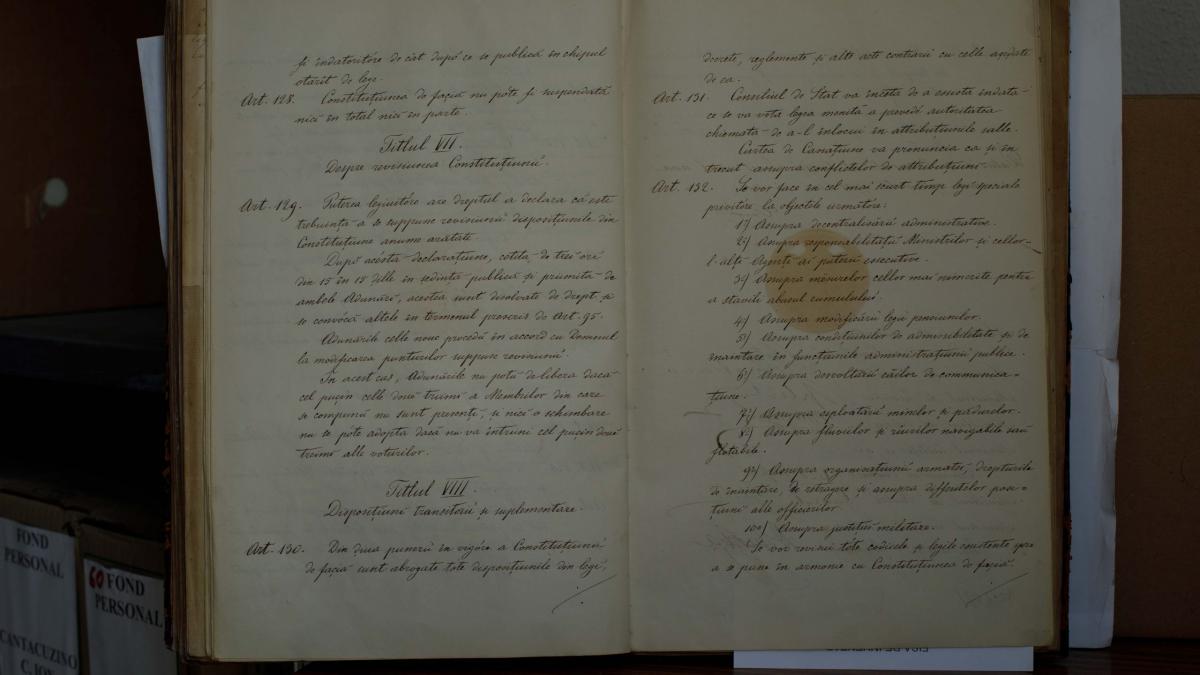 și îndatoritóre de cât după ce se publică în chipul
otărît de lege.
Art. 128. Constituțiunea de façiă nu póte fi suspendată
nici în total nici în parte.
Titlul VII.
Despre revisiunea Constituțiunii.
Art. 129. Puterea legiuitóre are dreptul a declara că este
trebuință a se suppune revisiunii disposițiunile din
Constituțiune anume arătate.
După acéstă declarațiune, cetită de trei ori
din 15 în 15 dille în ședință publică și priimită de
ambele Adunări, acestea sunt disolvate de drept și
se convócă altele în termenul prescris de Art. 95.
Adunările celle noue procedă în accord cu Domnul
la modificarea punturilor suppuse revisiunii.
În acest cas, Adunările nu potŭ delibera dacă
cel puçin celle doue treimi a Membrilor din care
se compunŭ nu sunt presenți, și nici o schimbare
nu se póte adopta dacă nu va întruni cel puçin doue
treimi alle voturilor.
Titlul VIII.
Disposițiuni transitorii și suplementare.
Art. 130. Din diua punerii în vigóre a Constituțiunii
de façiă sunt abrogate tóte disposițiunile din legi,
decrete, reglemente și alte acte contrarii cu celle așezate
de ea.
Art. 131. Consiliul de Stat va înceta de a essista îndată
ce se va vota legea menită a prevedé autoritatea
chiemată de a-l înlocui în attribuțiunile salle.
Curtea de Casațiune va pronuncia ca și în
trecut assupra conflictelor de attribuțiuni.
Art. 132. Se vor face în cel mai scurt timp legi speciale
privitóre la obiectele următóre:
1º/ Assupra decentralisării administrative.
2º/ Assupra responsabilității Ministrilor și cellor-
l-alți Agenți ai puterii esecutive.
3º/ Assupra mesurelor cellor mai nimerite pentru
a stavili abusul cumulului.
4º/ Assupra modificării legii pensiunilor.
5º/ Assupra condițiunilor de admisibilitate și de
înaintare în funcțiunile administrațiunii publice.
6º/ Assupra desvoltării căilor de communica-
țiune.
7º/ Assupra esploatării minelor și pădurelor.
8º/ Assupra fluviilor și rîurilor navigabile sau
flotabile.
9º/ Assupra organisațiunii armatei, drepturile
de înaintare, de retragere și assupra differitelor posi-
țiuni alle officierilor
10º/ Assupra justiției militare.
Se vor revisui tóte codicele și legile esistente spre
a se pune în armonie cu Constituțiunea de façiă.
FOND
PERSONAL
FOND
PERSONAL
CANTACUZINO
C. ION